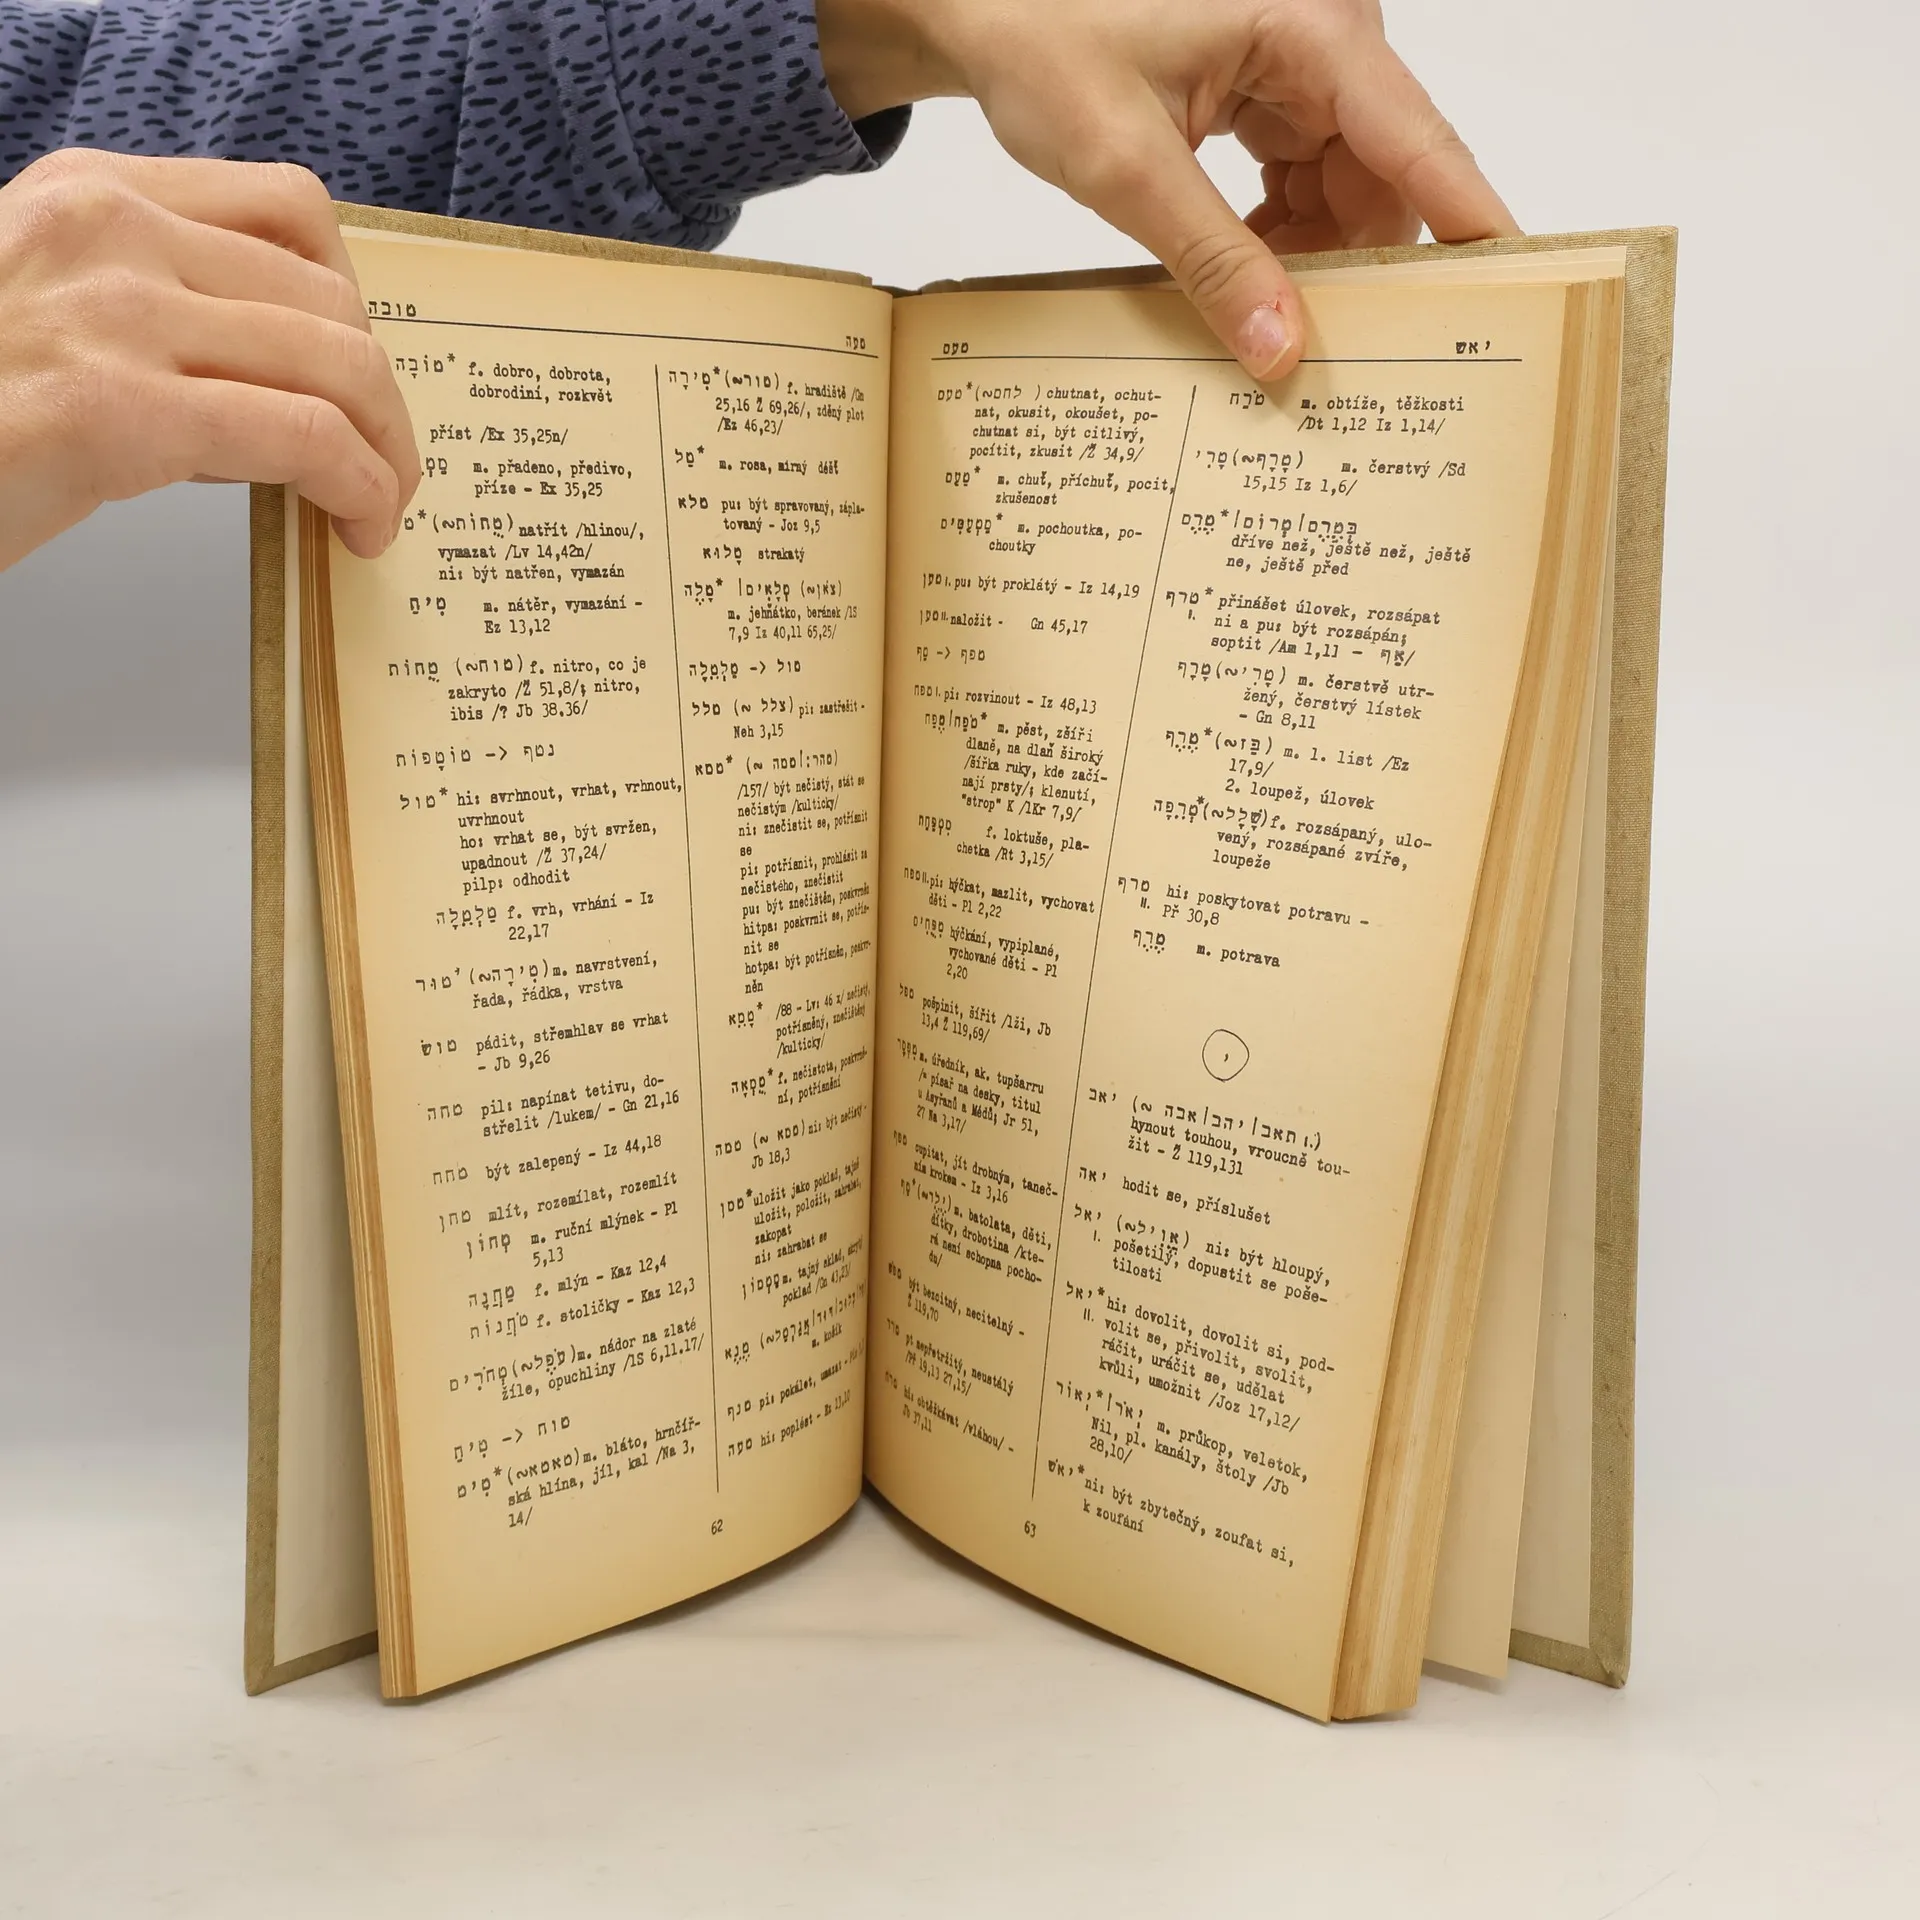 טובה
טעה
טוֹבָה* f. dobro, dobrota,
dobrodiní, rozkvět
příst /Ex 35,25n/
m. přadeno, předivo,
příze - Ex 35,25
natřít /hlinou/,
vymazat /Lv 14,42n/
ni: být natřen, vymazán
טִיחַ m. nátěr, vymazání -
Ez 13,12
טֻחוֹת (~טוח) f. nitro, co je
zakryto /Ž 51,8/; nitro,
ibis /? Jb 38.36/
טוֹטָפוֹת -> נטף
טול* hi: svrhnout, vrhat, vrhnout,
uvrhnout
ho: vrhat se, být svržen,
upadnout /Ž 37,24/
pilp: odhodit
טַלְטֵלָה f. vrh, vrhání - Iz
22,17
טוּר* (~טִירָה) m. navrstvení,
řada, řádka, vrstva
טושׂ pádit, střemhlav se vrhat
- Jb 9,26
טחה pil: napínat tetivu, do-
střelit /lukem/ - Gn 21,16
טחח být zalepený - Iz 44,18
טחן mlít, rozemílat, rozemlít
טְחוֹן m. ruční mlýnek - Pl
5,13
טַחֲנָה f. mlýn - Kaz 12,4
טֹחֲנוֹת f. stoličky - Kaz 12,3
טְחֹרִים (~עֹפֶל) m. nádor na zlaté
žíle, opuchliny /1S 6,11.17/
טִיחַ -> טוח
טִיט* (~טאטא) m. bláto, hrnčíř-
ská hlína, jíl, kal /Na 3,
14/
טִירָה* (~טור) f. hradiště /Gn
25,16 Ž 69,26/, zděný plot
/Ez 46,23/
טַל* m. rosa, mírný déšť
טלא pu: být spravovaný, zápla-
tovaný - Joz 9,5
טָלוּא strakatý
טָלֶה* |טְלָאִים (~צֹאן)
m. jehňátko, beránek /1S
7,9 Iz 40,11 65,25/
טַלְטֵלָה -> טול
טלל (~ צלל) pi: zastřešit -
Neh 3,15
טמא* (~ טמה|טהר:)
/157/ být nečistý, stát se
nečistým /kulticky/
ni: znečistit se, potřísnit
se
pi: potřísnit, prohlásit za
nečistého, znečistit
pu: být znečištěn, poskvrněn
hitpa: poskvrnit se, potřís-
nit se
hotpa: být potřísněn, poskvr-
něn
טָמֵא* /88 - Lv: 46 x/ nečistý,
potřísněný, znečištěný
/kulticky/
טֻמְאָה* f. nečistota, poskvrně-
ní, potřísnění
טמה (~ טמא) ni: být nečistý -
Jb 18,3
טמן* uložit jako poklad, tajně
uložit, položit, zahrabat,
zakopat
ni: zahrabat se
מַטְמוֹן m. tajný sklad, skrytý
poklad /Gn 43,23/
טֶנֶא
m. košík
טנף pi: pokálet, umazat -
טעה hi: poplést - Ez 13,10
62
טעם
יאש
טעם* (~לחם ) chutnat, ochut-
nat, okusit, okoušet, po-
chutnat si, být citlivý,
pocítit, zkusit /Ž 34,9/
טַעַם* m. chuť, příchuť, pocit,
zkušenost
מַטְעַמִּים* m. pochoutka, po-
choutky
טען I. pu: být proklátý - Iz 14,19
טען II. naložit - Gn 45,17
טַף -> טפף
טפח I. pi: rozvinout - Iz 48,13
טֶפַח|טֹפַח* m. pěst, zšíři
dlaně, na dlaň široký
/šířka ruky, kde začí-
nají prsty/; klenutí,
"strop" K /1Kr 7,9/
מִטְפַּחַת f. loktuše, pla-
chetka /Rt 3,15/
טפח II. pi: hýčkat, mazlit, vychovat
děti - Pl 2,22
טִפֻּחִים hýčkání, vypiplané,
vychované děti - Pl
2,20
טפל pošpinit, šířit /lži, Jb
13,4 Ž 119,69/
טִפְסָר m. úředník, ak. tupšarru
/= písař na desky, titul
u Asyřanů a Médů; Jr 51,
27 Na 3,17/
טפף cupitat, jít drobným, taneč-
ním krokem - Iz 3,16
טַף* (~יֶלֶד) m. batolata, děti,
dítky, drobotina /kte-
rá není schopna pocho-
du/
טפשׁ být bezcitný, necitelný -
Ž 119,70
טרד pt nepřetržitý, neustálý
/Př 19,13 27,15/
טרח hi: obtěžkávat /vláhou/ -
Jb 37,11
טֹרַח m. obtíže, těžkosti
/Dt 1,12 Iz 1,14/
טָרִי (~טָרָף) m. čerstvý /Sd
15,15 Iz 1,6/
טֶרֶם* |טְרוֹם|בְּטֶרֶם
dříve než, ještě než, ještě
ne, ještě před
טרף* přinášet úlovek, rozsápat
I. ni a pu: být rozsápán;
soptit /Am 1,11 - אַף/
טָרָף (~טָרִי) m. čerstvě utr-
žený, čerstvý lístek
- Gn 8,11
טֶרֶף* (~בַּז) m. 1. list /Ez
17,9/
2. loupež, úlovek
טְרֵפָה* (~שָׁלָל) f. rozsápaný, ulo-
vený, rozsápané zvíře,
loupeže
טרף hi: poskytovat potravu -
II. Př 30,8
טֶרֶף m. potrava
י
יאב (~ אבה|יהב|תאב I.)
hynout touhou, vroucně tou-
žit - Ž 119,131
יאה hodit se, příslušet
יאל (~אֱוִיל) ni: být hloupý,
I. pošetilý, dopustit se poše-
tilosti
יאל* hi: dovolit, dovolit si, pod-
II. volit se, přivolit, svolit,
ráčit, uráčit se, udělat
kvůli, umožnit /Joz 17,12/
יְאוֹר*|יְאֹר m. průkop, veletok,
Nil, pl. kanály, štoly /Jb
28,10/
יאשׁ* ni: být zbytečný, zoufat si,
k zoufání
63